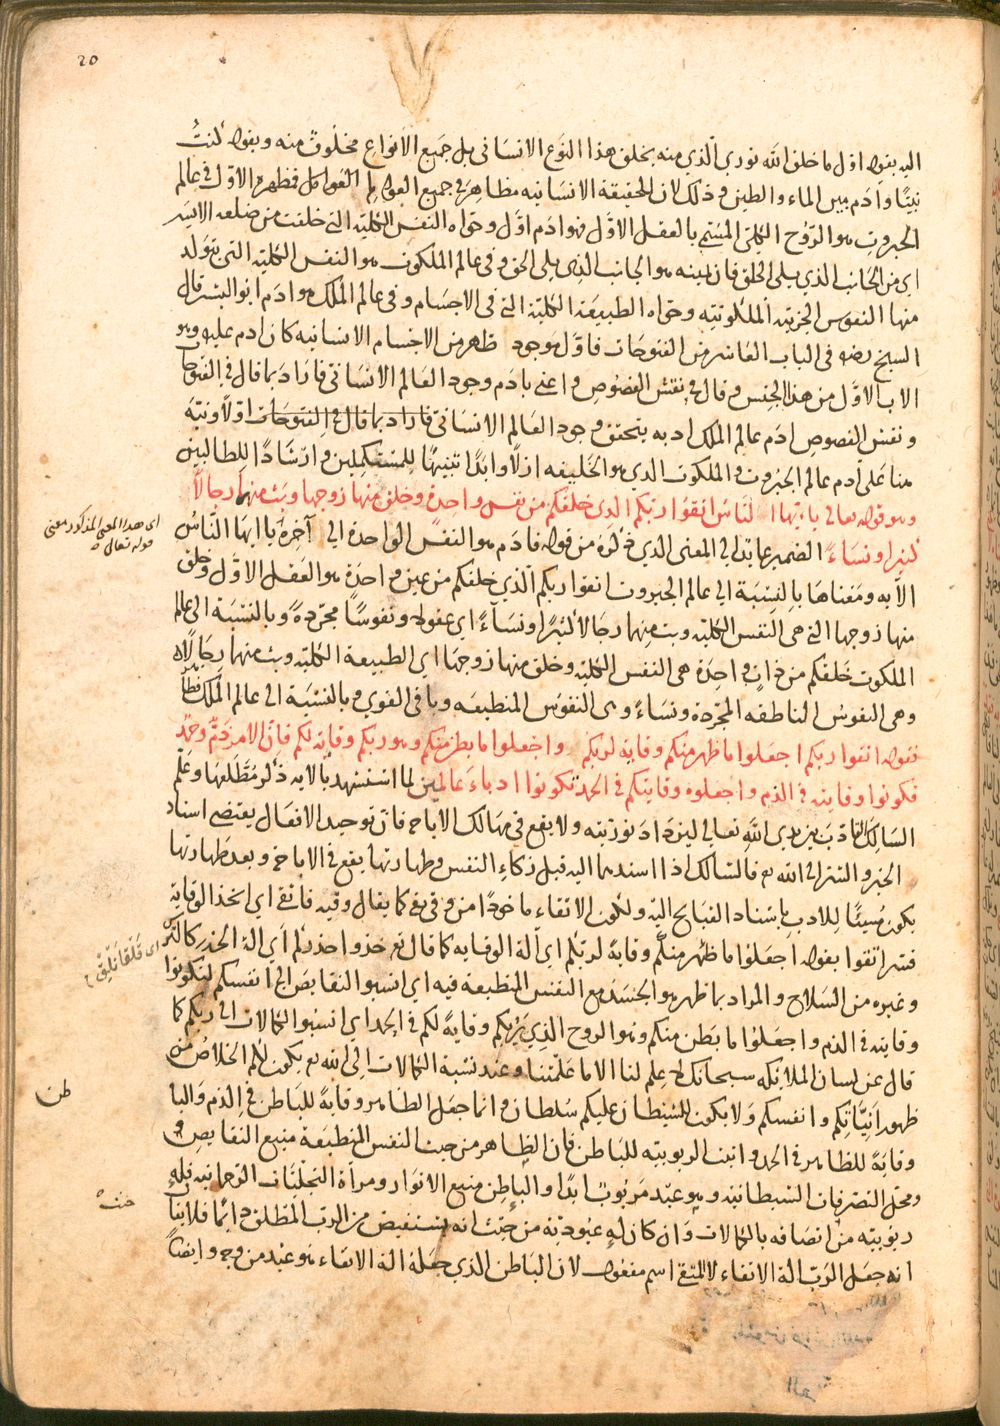 20
اليه بقوله اول ما خلق الله نورى الذي منه يخلق هذا النوع الانسانى بل جميع الانواع مخلوق منه وبقوله كنتُ
نبيًا وآدم بين الماء والطين وذلك لان الحقيقة الانسانيه مظاهر فى جميع العوالم فمظهره الاول فى عالم
الجبروت هو الروح الكلي المسمى بالعقل الاول فهو ادم اول وحواه النفس الكلية التى خلقت من ضلعه الايسر
اى من الجانب الذي يلى الخلق فان يمينه هو الجانب الذى يلى الحق وفى عالم الملكوت هو النفس الكلية التى يتولد
منها النفوس الجزئيه الملكوتيه وحواه الطبيعة الكلية التى فى الاجسام وفى عالم الملك هو ادم ابو البشر قال
الشيخ رضه فى الباب العاشر من الفتوحات فاول موجود ظهر من الاجسام الانسانيه كان ادم عليه وهو
الاب الاول من هذا الجنس وقال فى نقش الفصوص واعنى بآدم وجود العالم الانسانى فاراد بما قال فى الفتوحات
ونقش الفصوص ادم عالم الملك اذ به يتحقق وجود العالم الانسانى فاراد بما قال فى الفتوحات اولا ونبه
هنا على آدم عالم الجبروت والملكوت الذي هو الخليفه ازلًا وابدًا تنبيهًا للمستكملين وارشادًا للطالبين
وهو قوله تعالى يا ايها الناس اتقوا ربكم الذى خلقكم من نفس واحدة وخلق منها زوجها وبث منهما رجالاً
كثيرا ونساءً الضمير عائد الى المعنى الذي ذكره من قوله فآدم هو النفس الواحدة الى آخره يا ايها الناسُ
الآيه ومعناها بالنسبة الى عالم الجبروت اتقوا ربكم الذي خلقكم من عين واحدة هو العقل الاول وخلق
منها زوجها التى هى النفس الكلية وبث منهما رجالا كثيرًا ونساءً اى عقولا ونفوسًا مجردة وبالنسبة الى عالم
الملكوت خلقكم من ذات واحدة هى النفس الكلية وخلق منها زوجها اي الطبيعة الكلية وبث منهما رجالا
وهى النفوس الناطقه المجردة ونساءً وهى النفوس المنطبعه وباقى القوي وبالنسبة الى عالم الملك فظاهر
فقوله اتقوا ربكم اجعلوا ما ظهر منكم وقاية لربكم واجعلوا ما بطن منكم وهو ربكم وقاية لكم فان الامر ذم وحمد
فكونوا وقايته فى الذم واجعلوه وقايتكم فى الحمد تكونوا ادباء عالمين لما استشهد بالايه ذكر مطلعها وعلم
السالك التادب بين يدى الله تعالى ليزداد نوريته ولا يقع فى مهالك الاباحه فان توحيد الافعال يقتضى اسناد
الخير والشر الى الله تع فالسالك اذا اسندهما اليه قبل زكاء النفس وطهارتها يقع فى الاباحة وبعد طهارتها
يكون مُسِيئًا للادب باسناد القبايح اليه ولكون الاتقاء ماخوذًا من وقى يقى كما يقال وقيه فاتقى اي اتخذ الوقاية
فسر اتقوا بقوله اجعلوا ما ظهر منكم وقاية لربكم اي آلة الوقايه كما قال تع خذوا حذركم اى الة الحذر كالترس
وغيره من السلاح والمراد بما ظهر هو الجسد مع النفس المنطبعة فيه اى انسبوا النقايص الى انفسكم لتكونوا
وقايته فى الذم واجعلوا ما بطن منكم وهو الروح الذي يربكم وقاية لكم فى الحمد اي انسبوا الكمالات الى ربكم كما
قال عن لسان الملائكه سبحانك لا علم لنا الا ما علمتنا وعند نسبة الكمالات الى الله تع يكون لكم الخلاص من
ظهور انيّاتكم وانفسكم ولا يكون للشيطان عليكم سلطان وانما جعل الظاهر وقاية للباطن فى الذم والبا
وقاية للظاهر فى الحمد واثبت الربوبيه للباطن فان الظاهر من حيث النفس المنطبعة منبع النقايص و
ومحل التصرفات الشيطانية وهو عبد مربوب ابدًا والباطن منبع الانوار ومرآة التجليات الرحمانيه فله
ربوبيه من اتصافه بالكمالات وان كان له عبوديّة من حيث انه يستفيض من الرب المطلق دائمًا فلا يقال
انه جعل الربّ الة الاتقاء لا المتقى اسم مفعول لان الباطن الذي جعله الة الاتقاء هو عبد من وجه وايضًا
اى هذا المعنى المذكور معنى
قوله تعالى
طن